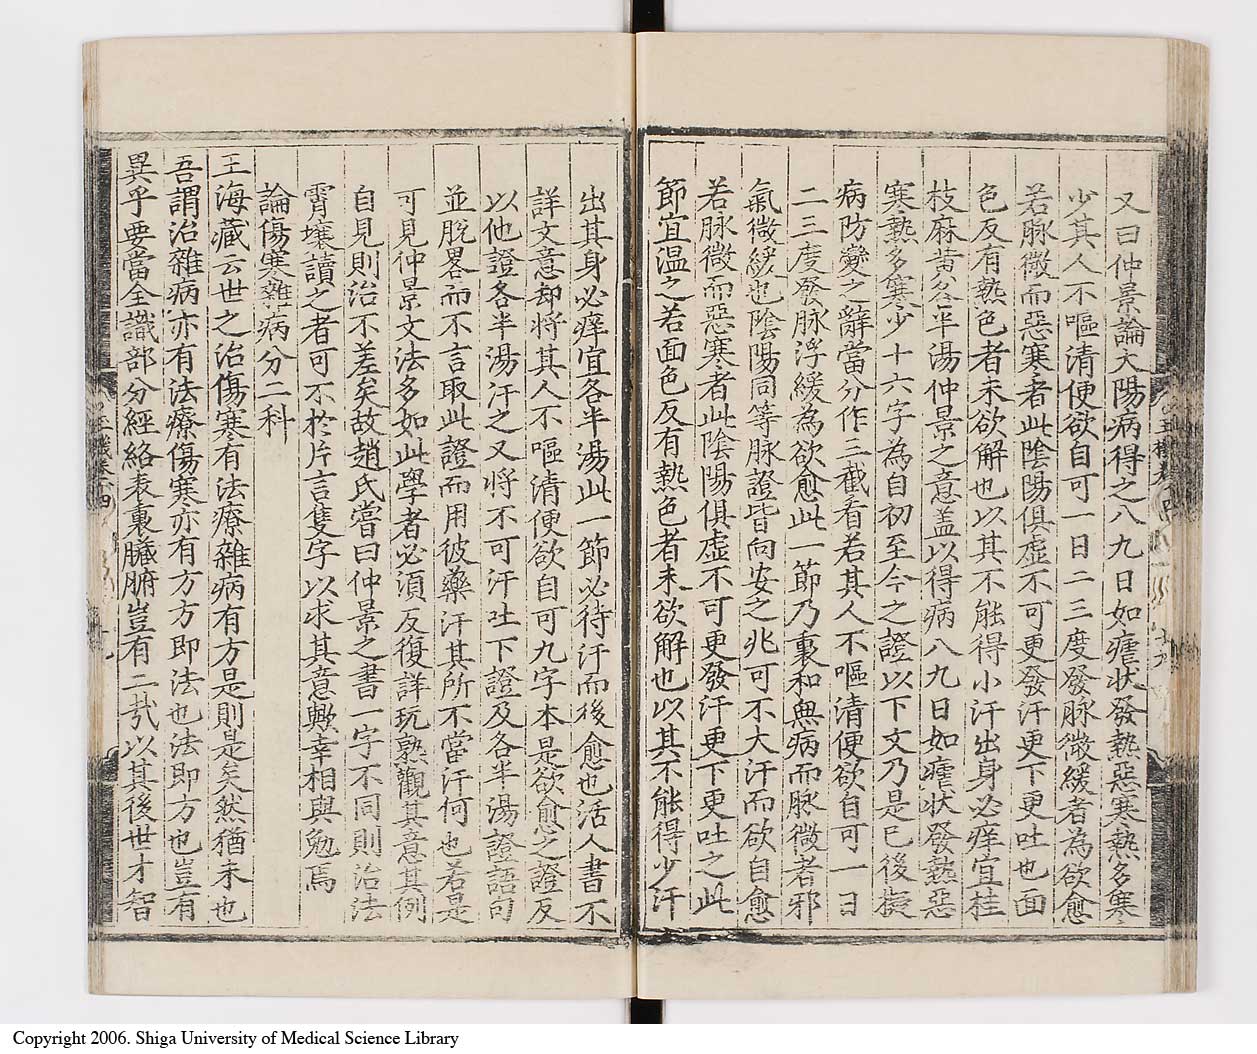 又曰仲景論太陽病得之八九日如瘧狀發熱惡寒熱多寒
少其人不嘔清便欲自可一日二三度發脉微緩者為欲愈
若脉微而惡寒者此陰陽俱虛不可更發汗更下更吐也面
色反有熱色者未欲解也以其不能得小汗出身必痒宜桂
枝麻黃各半湯仲景之意蓋以得病八九日如瘧狀發熱惡
寒熱多寒少十六字為自初至今之證以下文乃是已後擬
病防變之辭當分作三截看若其人不嘔清便欲自可一日
二三度發脉浮緩為欲愈此一節乃裏和無病而脉微者邪
氣微緩也陰陽同等脉證皆向安之兆可不大汗而欲自愈
若脉微而惡寒者此陰陽俱虛不可更發汗更下更吐之此
節宜温之若面色反有熱色者未欲解也以其不能得少汗
出其身必痒宜各半湯此一節必待汗而後愈也活人書不
詳文意却將其人不嘔清便欲自可九字本是欲愈之證反
以他證各半湯汗之又將不可汗吐下證及各半湯證語句
並脫畧而不言取此證而用彼藥汗其所不當汗何也若是
可見仲景文法多如此學者必須反復詳玩熟觀其意其例
自見則治不差矣故趙氏嘗曰仲景之書一字不同則治法
霄壤讀之者可不於片言隻字以求其意歟幸相與勉焉
論傷寒雜病分二科
王海藏云世之治傷寒有法療雜病有方是則是矣然猶未也
吾謂治雜病亦有法療傷寒亦有方方即法也法即方也豈有
異乎要當全識部分經絡表裏臟腑豈有二㢤以其後世才智
Copyright 2006. Shiga University of Medical Science Library